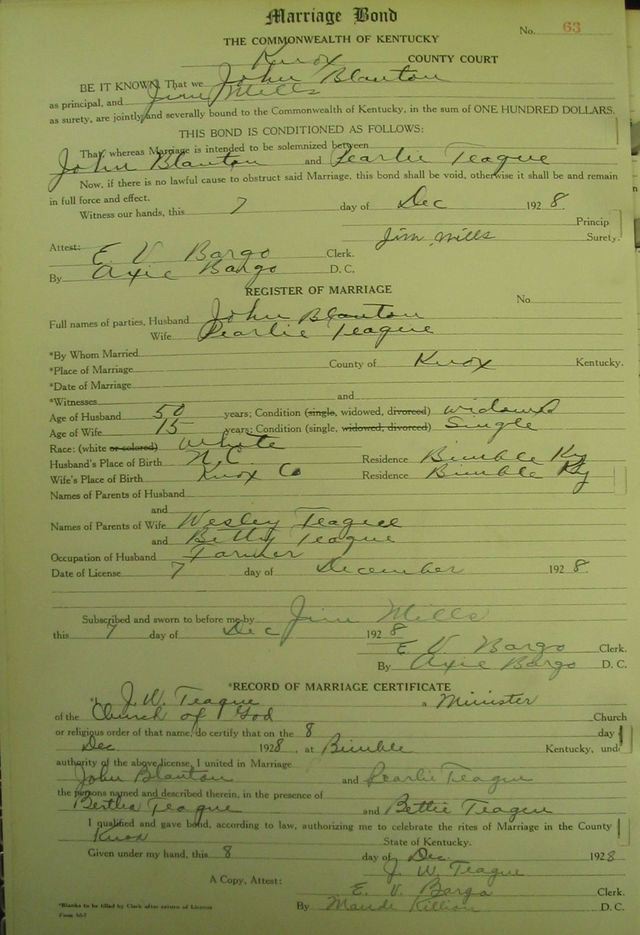 Marriage Bond
No. 63
THE COMMONWEALTH OF KENTUCKY
Knox COUNTY COURT
BE IT KNOWN, That we John Blanton
as principal, and Jim Mills
as surety, are jointly and severally bound to the Commonwealth of Kentucky, in the sum of ONE HUNDRED DOLLARS.
THIS BOND IS CONDITIONED AS FOLLOWS:
That, whereas Marriage is intended to be solemnized between
John Blanton and Pearlie Teague
Now, if there is no lawful cause to obstruct said Marriage, this bond shall be void, otherwise it shall be and remain
in full force and effect.
Witness our hands, this 7 day of Dec 1928.
Princip
Jim Mills Surety.
Attest: E V Bargo Clerk.
By Axie Bargo D. C.
REGISTER OF MARRIAGE
No
Full names of parties, Husband John Blanton
Wife Pearlie Teague
*By Whom Married
*Place of Marriage County of Knox Kentucky.
*Date of Marriage
*Witnesses and
Age of Husband 50 years; Condition (single, widowed, divorced) widowed
Age of Wife 15 years; Condition (single, widowed, divorced) Single
Race: (white or colored) White
Husband's Place of Birth N.C Residence Bimble Ky
Wife's Place of Birth Knox Co Residence Bimble Ky
Names of Parents of Husband
and
Names of Parents of Wife Wesley Teague
and Betty Teague
Occupation of Husband Farmer
Date of License 7 day of December 1928.
Subscribed and sworn to before me by Jim Mills
this 7 day of Dec 1928
E V Bargo Clerk.
By Axie Bargo D. C.
*RECORD OF MARRIAGE CERTIFICATE
*I, J. W. Teague a Minister
of the Church of God Church
or religious order of that name, do certify that on the 8 day
Dec 1928, at Bimble Kentucky, und
authority of the above license, I united in Marriage
John Blanton and Pearlie Teague
the persons named and described therein, in the presence of
Bertha Teague and Bettie Teague
I qualified and gave bond, according to law, authorizing me to celebrate the rites of Marriage in the County
Knox State of Kentucky.
Given under my hand, this 8 day of Dec 1928
J. W. Teague
A Copy, Attest: E. V. Bargo Clerk.
*Blanks to be filled by Clerk after return of License
By Maude Killion D. C.